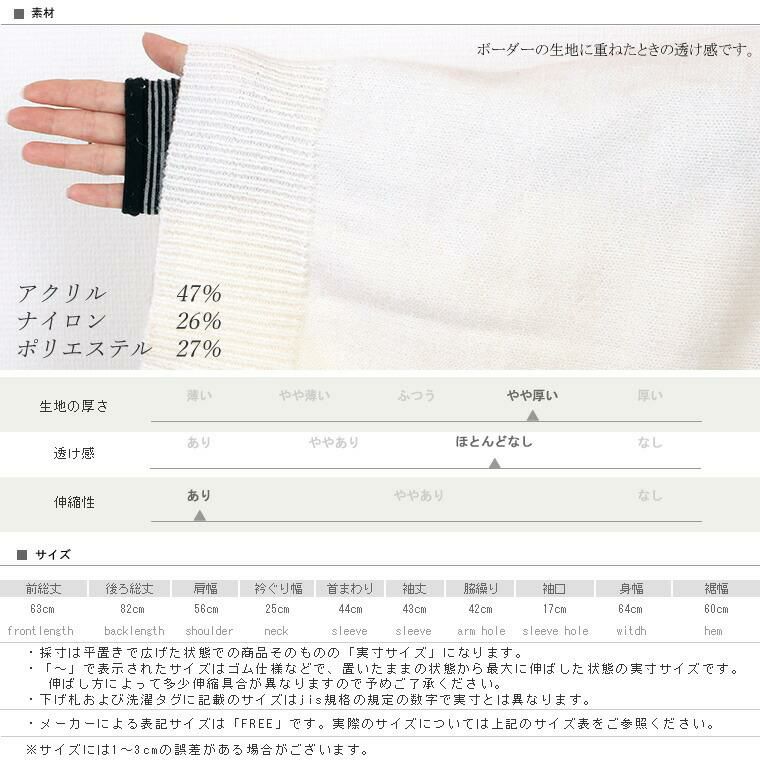 ■ 素材
ボーダーの生地に重ねたときの透け感です。
アクリル 47%
ナイロン 26%
ポリエステル 27%
生地の厚さ 薄い やや薄い ふつう やや厚い 厚い
透け感 あり ややあり ほとんどなし なし
伸縮性 あり ややあり なし
■ サイズ
前総丈 後ろ総丈 肩幅 衿ぐり幅 首まわり 袖丈 脇繰り 袖口 身幅 裾幅
63cm 82cm 56cm 25cm 44cm 43cm 42cm 17cm 64cm 60cm
frontlength backlength shoulder neck sleeve sleeve arm hole sleeve hole witdh hem
・採寸は平置きで広げた状態での商品そのものの「実寸サイズ」になります。
・「～」で表示されたサイズはゴム仕様などで、置いたままの状態から最大に伸ばした状態の実寸サイズです。
伸ばし方によって多少伸縮具合が異なりますので予めご了承ください。
・下げ札および洗濯タグに記載のサイズはjis規格の規定の数字で実寸とは異なります。
・メーカーによる表記サイズは「FREE」です。実際のサイズについては上記のサイズ表をご参照ください。
※サイズには1～3cmの誤差がある場合がございます。